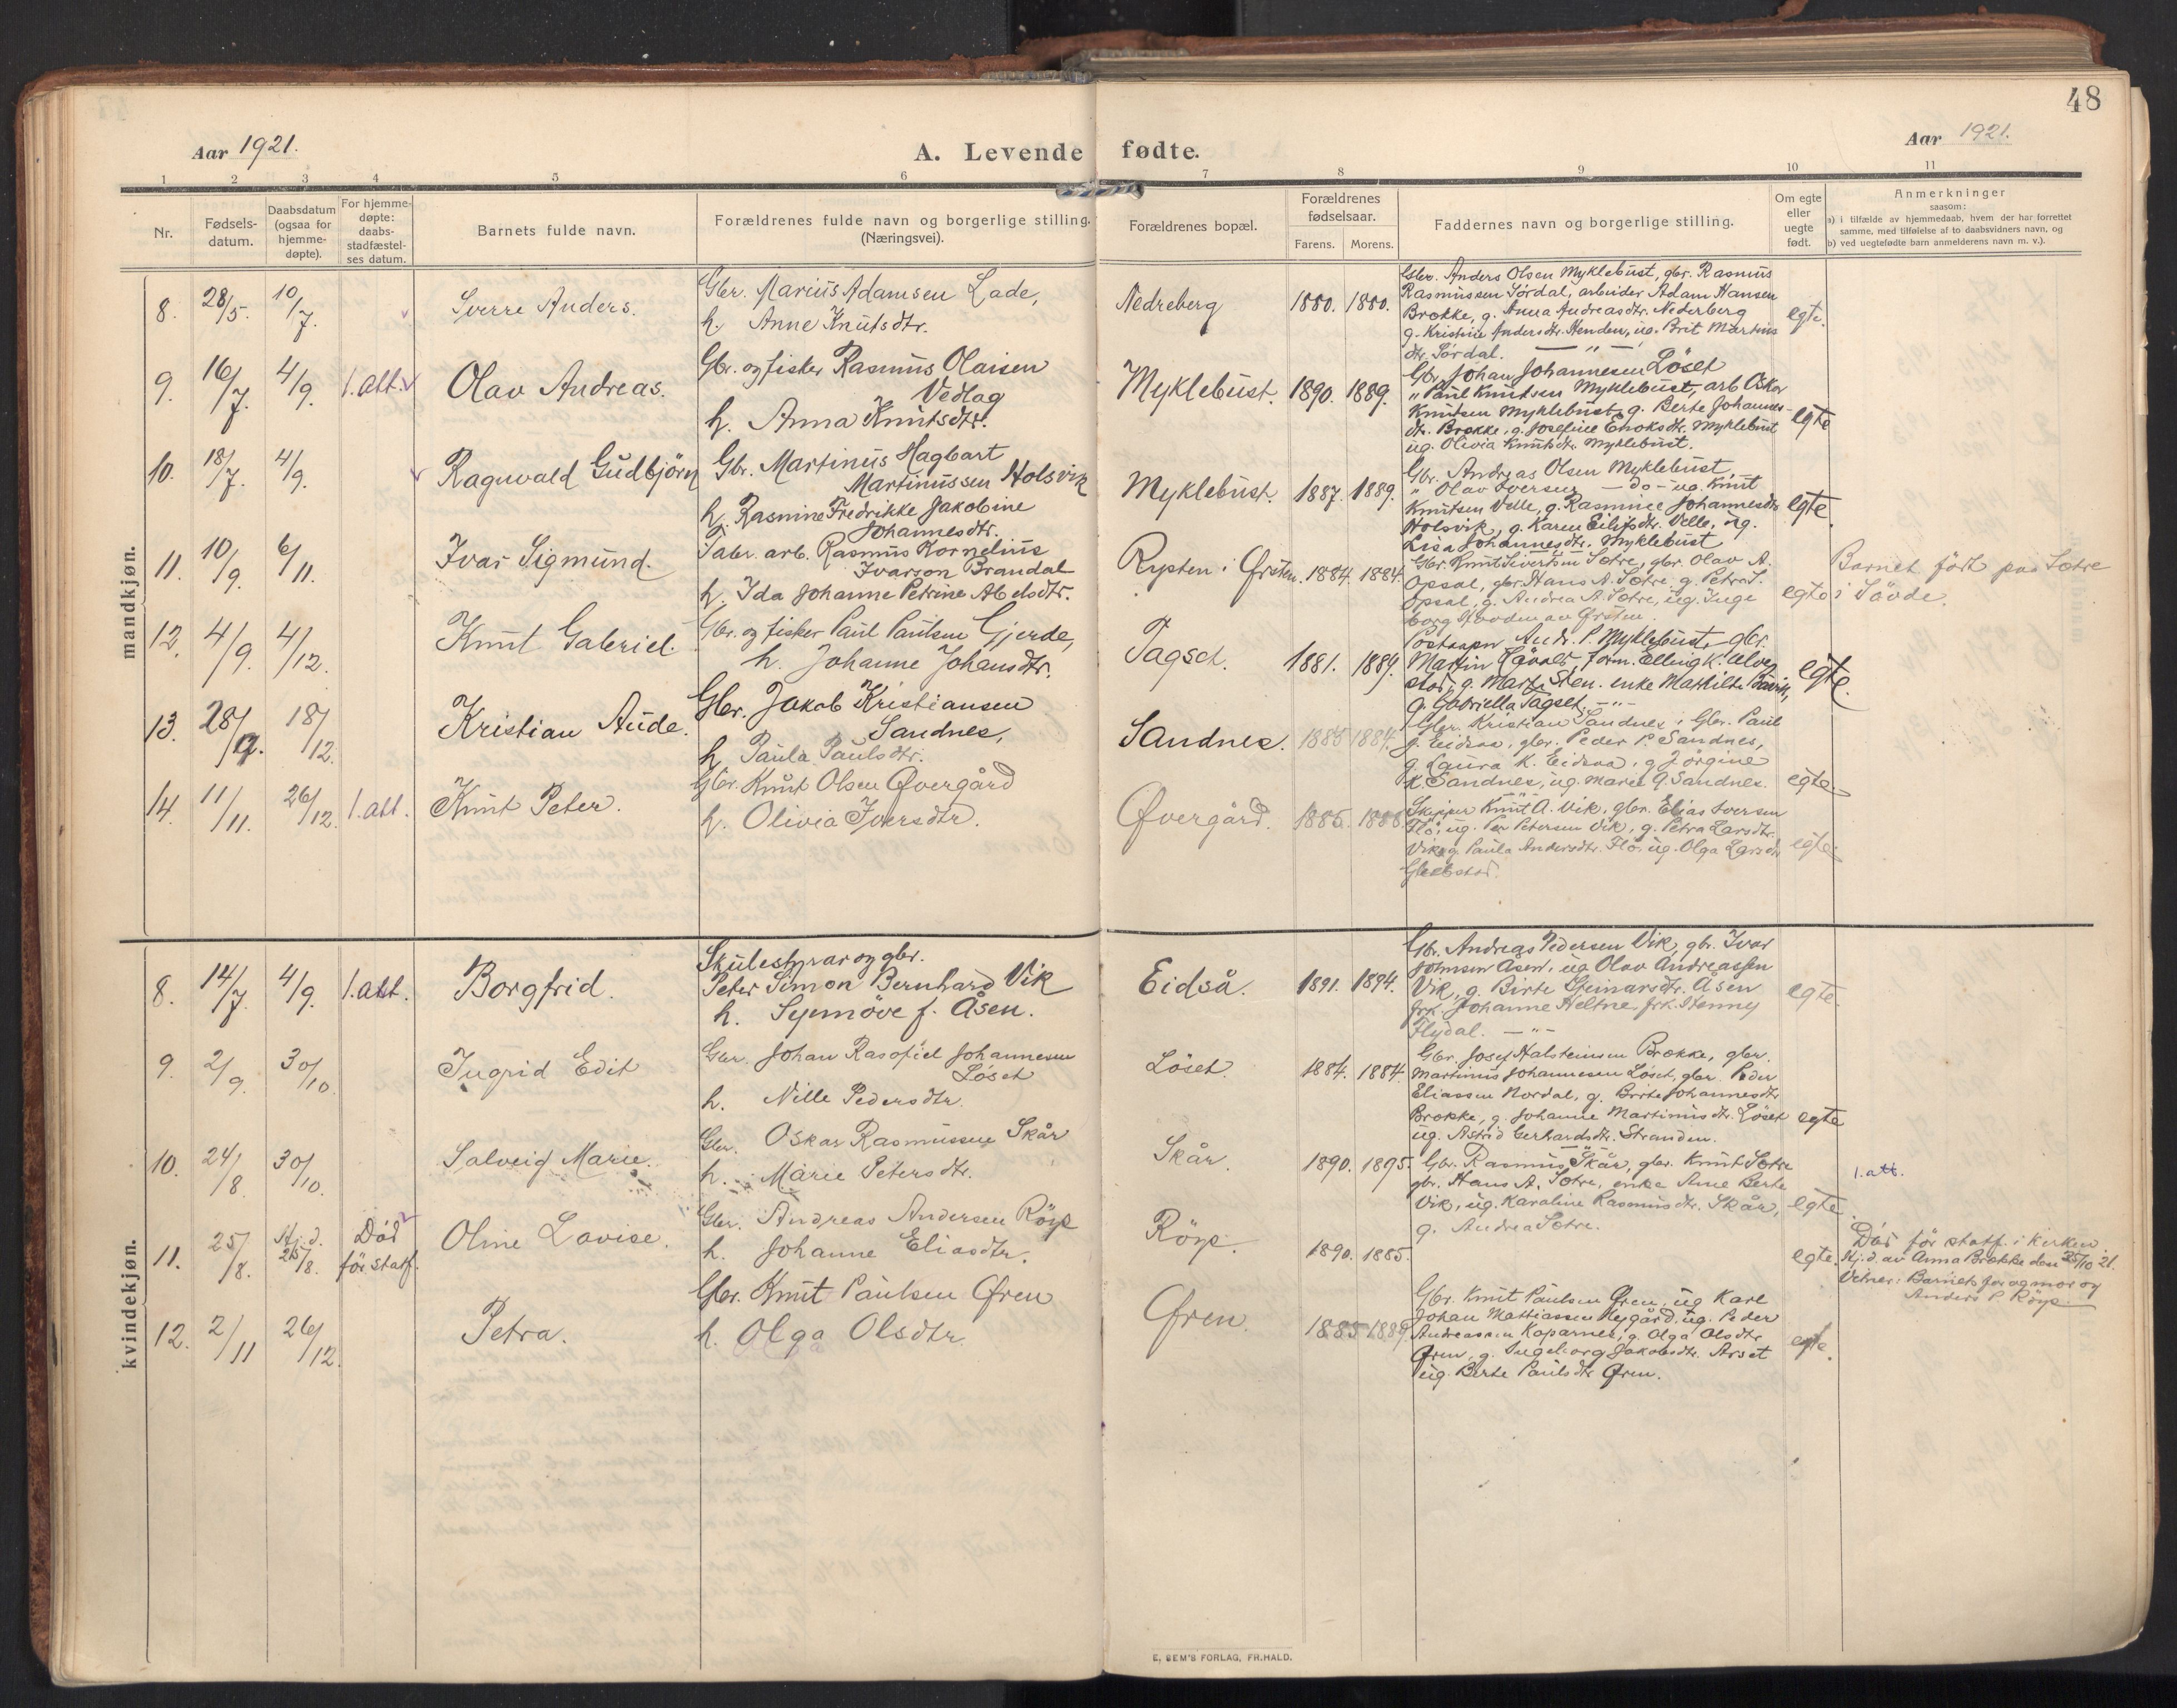 48
Aar 1921.
A. Levende fødte.
Aar 1921.
1 2 3 4 5 6 7 8 9 10 11
Nr.
Fødsels-
datum.
Daabsdatum
(ogsaa for
hjemme-
døpte).
For hjemme-
døpte:
daabs-
stadfæstel-
ses datum.
Barnets fulde navn.
Forældrenes fulde navn og borgerlige stilling.
(Næringsvei).
Forældrenes bopæl.
Forældrenes
fødselsaar.
Farens. Morens.
Faddernes navn og borgerlige stilling.
Om egte
eller
uegte
født.
Anmerkninger
saasom:
a) i tilfælde av hjemmedaab, hvem der har forrettet
samme, med tilføielse af to daabsvidners navn, og
b) ved uegtefødte barn anmelderens navn m. v.).
mandkjøn.
8. 28/5. 10/7. Sverre Anders.
Gbr. Marius Adamsen Lade,
h. Anne Knutsdtr.
Nedreberg 1880. 1880.
Gbr. Anders Olsen Myklebust, gbr. Rasmus
Rasmussen Sördal, arbeider Adam Hansen
Brekke, g. Anna Andreasdtr. Nederberg
g. Kristine Andersdtr. Henden, ug. Brit Martins
dtr. Sördal. — " —
egte.
9. 16/7. 4/9. 1.att. Olav Andreas.
Gbr. og fisker Rasmus Olaisen
Vedlag
h. Anna Knutsdtr.
Myklebust. 1890. 1889.
Gbr. Johan Johannesen Löset
" Paul Knutsen Myklebust, arb Oskar
Knutsen Myklebust, g. Berte Johannes-
dtr. Brekke, g. Josefine Enoksdtr. Myklebust
ug. Olivia Knutsdtr. Myklebust.
egte
10. 18/7. 4/9. Ragnvald Gudbjörn
Gbr. Martinus Hagbart
Martinussen Holsvik
h. Rasmine Fredrikke Jakobine
Johannesdtr.
Myklebust. 1887. 1889.
Gbr. Andreas Olsen Myklebust,
" Olav Iversen — do — ug. Knut
Knutsen Velle, g. Rasmine Johannesdtr
Holsvik, g. Karen Eilifsdtr. Velle, ug.
Lisa Johannesdtr. Myklebust
egte.
11. 10/9. 6/11. Ivar Sigmund.
Fabr. arb. Rasmus Kornelius
Ivarson Brandal
h. Ida Johanne Petrine Abelsdtr.
Rysten i Ørsten. 1884. 1884.
Gbr. Knut Sivertsen Sætre, gbr. Olav A.
Opsal, gbr. Hans A. Sætre, g. Petra S.
Opsal, g. Andrea A. Sætre, ug. Inge
borg av Ørsten.
egte
Barnet född paa Sætre
i Sövde.
12. 4/9. 4/12. Knut Gabriel.
Gbr. og fisker Paul Paulsen Gjerde,
h. Johanne Johansdtr.
Tagset. 1881. 1889.
Andr. P. Myklebust, gbr.
Martin form. Elling K. Alve
stad, g. enke Mathilde
g. Gabriella Tagset. — " —
egte.
13. 28/9. 18/12. Kristian Aude.
Gbr. Jakob Kristiansen
Sandnes,
h. Paula Paulsdtr.
Sandnes. 1885 1884.
Gbr. Kristian Sandnes, Gbr. Paul
J. Eidsaa, gbr. Peder P. Sandnes,
g. Laura K. Eidsaa, g. Jörgine
K. Sandnes, ug. Marie G. Sandnes.
egte.
14. 11/11. 26/12. 1.att. Knut Peter.
Gbr. Knut Olsen Øvergård
h. Olivia Iversdtr.
Øvergård. 1885. 1888.
Skipper Knut A. Vik, gbr. Elias Iversen
Flö, ug. Per Petersen Vik, g. Petra Larsdtr.
Vik, g. Paula Andersdtr. Flö. ug. Olga Larsdtr
egte.
kvindekjøn.
8. 14/7. 4/9. 1.att. Borgfrid.
Skulestyrar og gbr.
Peter Simon Bernhard Vik
h. Synnöve f. Åsen.
Eidså. 1891. 1894.
Gbr. Andreas Pedersen Vik, gbr. Ivar
Johnsen Åsen, ug Olav Andreassen
Vik, g. Birte Steinarsdtr. Åsen
frk. Johanne Heltne, frk. Henny
Flydal. — " —
egte.
9. 2/9. 30/10. Ingrid Edit
Gbr. Johan Rasofiel Johannesen
Löset
h. Nille Pedersdtr.
Löset. 1884. 1884.
Gbr. Josef Halsteinsen Brekke, gbr.
Martinus Johannesen Löset, gbr. Peder
Eliassen Nordal, g. Birte Johannesdtr
Brekke, g. Johanne Martinusdtr. Löset
ug. Astrid Gerhardsdtr. Stranden.
egte
10. 24/8. 30/10. Solveig Marie.
Gbr. Oskar Rasmussen Skår
h. Marie Petersdtr.
Skår. 1890. 1895.
Gbr. Rasmus Skår, gbr. Knut Sætre
gbr. Hans A. Sætre, enke Ane Berte
Vik, ug. Karoline Rasmusdtr. Skår,
g. Andrea Sætre.
egte.
1.att.
11. 25/8. Hj.d. 25/8. Död för statf. Oline Lovise.
Gbr. Andreas Andersen Röys
h. Johanne Eliasdtr.
Röys. 1890. 1885.
egte.
Död för statf. i kirken
Hj.d. av Anna Brekke den 25/10 21.
Vitner: Barnets far og mor og
Anders P. Röys.
12. 2/11 26/12. Petra.
Gbr. Knut Paulsen Øren
h. Olga Olsdtr.
Øren. 1885 1889.
Gbr. Knut Paulsen Øren, ug Karl
Johan Mattiassen Nygård, ug. Peder
Andreassen Koparnes, g. Olga Olsdtr
Øren, g. Ingeborg Jakobsdtr. Årset
ug. Berte Paulsdtr Øren.
egte.
E, SEM'S FORLAG, FR.HALD.